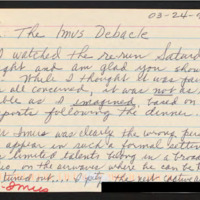 03-24-9
The Imus Debacle
I watched the re-run Satur
ight and am glad you show
While I thought it was
all concerned, it was not as
ble as I imagined, based on
ports following the dinner.
Imus was clearly the wrong per
appear in such a formal setting
limited talents belong in a broad
on the airwaves where he can be
turned out.... I pity the next
Imus